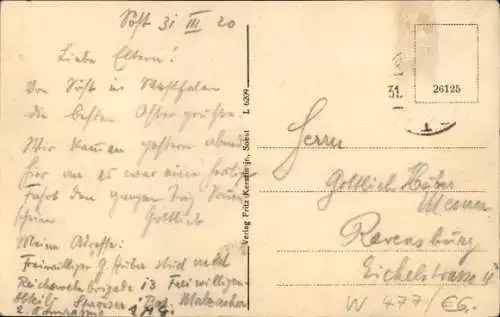 Söst 31 III 20
Liebe Eltern!
Von Söst in Westfalen
die besten Ostergrüße.
Wir kamen gestern abend
hier an es war eine
Fahrt den ganzen Tag
schein Gottlieb
Meine Adresse:
Freiwilliger G Huber stud
Reichswehrbrigade 13 Freiwilligen
2. Kompagnie
Verlag Fritz Kersting jr, Soest L 6209
26125
31.
Herrn
Gottlieb Huber
Mesner
Ravensburg
Eichelstrasse
W 477/€6.